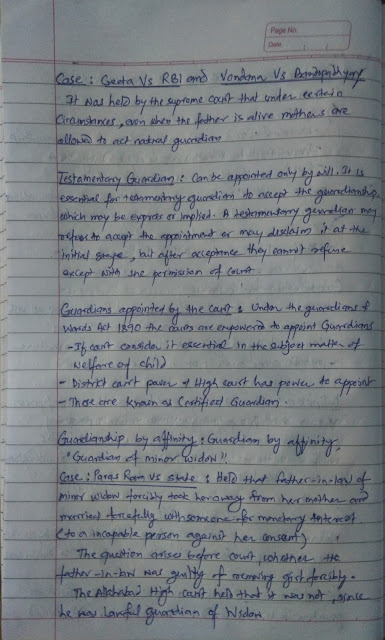 Page No.
Date
Case : Geeta Vs RBI and Vandana Vs
It was held by the supreme court that under certain
Circumstances, even when the father is alive mothers are
allowed to act natral guardian
Testamentary Guardian : Can be appointed only by will. It is
essential for testamentary guardian to accept the guardianship
which may be express or implied. A testamentary guardian may
refuse to accept the appointment or may disclaim it at the
initial stage, but after acceptance they cannot refuse
except with the permission of court.
Guardians appointed by the court : Under the guardians &
Wards Act 1890 the courts are empowered to appoint Guardians
- If court consider it essential in the subject matter of
Welfare of child
- District court power & High court has power to appoint
- These are known as Certified Guardian.
Guardianship by affinity : Guardian by affinity.
"Guardian of minor widow".
Case : Paras Ram Vs state : Held that father-in-law of
minor widow forcibly took her away from her mother and
married forcefully with someone for monetary interest
(to a incapable person against her consent)
The question arises before court, whether the
father-in-law was guilty of removing girl forcibly.
The Allahabad High court held that it was not, since
he was lawful guardian of Widow